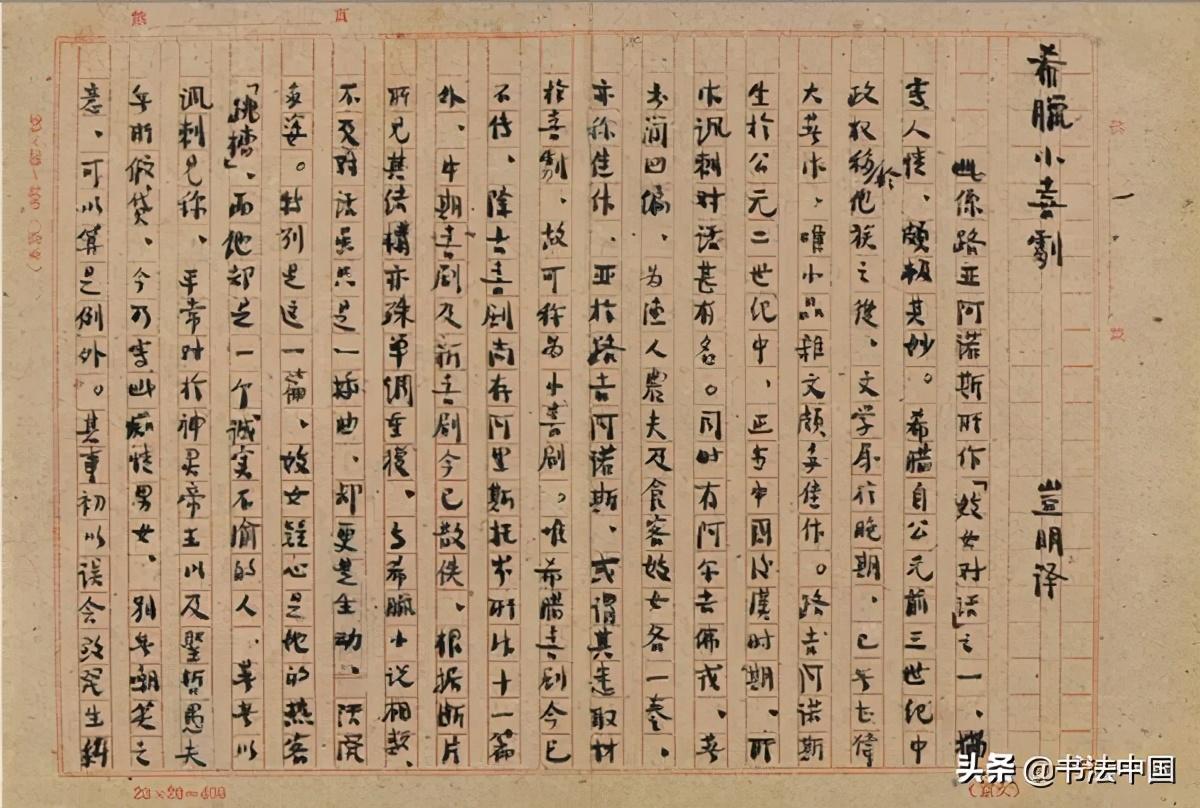 希臘小喜劇 豈明译
此係路亚阿诺斯所作「妓女对话」之一、描
书人情、颇极其妙。希腊自公元前三世纪中
政权移於他族之後、文学尽行晚期、已無甚偉
大著作、唯小品雜文颇多佳作。路吉阿诺斯
生於公元二世纪中、正当中国後漢时期、所
作讽刺对话甚有名。同时有阿尔吉佛戎、著
书简四编、为渔人農夫及食客妓女各一卷、
亦称佳作、亚於路吉阿诺斯、或谓其悉取材
於喜剧、故可称为小喜剧。唯希腊喜剧今已
不传、除古喜剧尚存阿里斯托芬所作十一篇
外、中期喜剧及新喜剧今已散佚、根据断片
所見其结構亦殊单调重複、与希臘小说相類、
不及对话虽只是一插曲、却更是生动、活泼
多姿。特别是这一篇、妓女疑心是他的熱客
「跳槽」、而他却是一个诚实不渝的人、著者以
讽刺見称、平常对於神男帝王以及聖哲愚夫
無所假貸、今乃写此痴情男女、别無嘲笑之
意、可以算是例外。其事初以误会致発生糾
20×20=400
一
头条 @书法中国